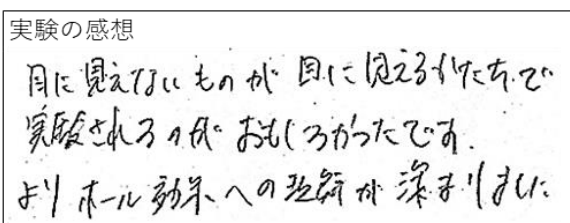 実験の感想
目に見えないものが目に見えるかたちで
実験されるのがおもしろかったです.
よりホール効果への理解が深まりました